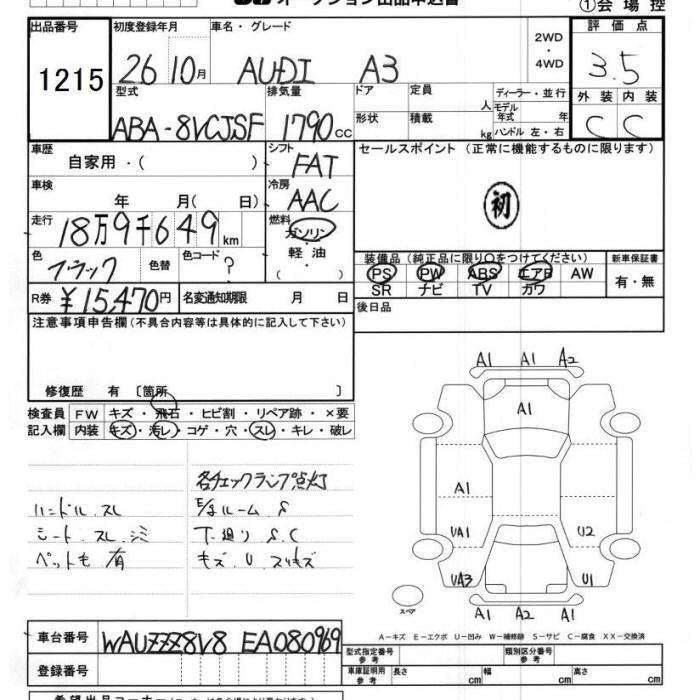 オークション出品申込書
①会場控
出品番号 初度登録年月 車名・グレード 2WD ・ 4WD 評価点
1215 26 10月 AUDI A3 3.5
型式 排気量 ドア 定員 人 ディーラー・並行 外装 内装
ABA-8VCJSF 1790cc 形状 積載 kg モデル年式 年 ハンドル 左・右 C C
車歴 自家用・( ) シフト FAT セールスポイント (正常に機能するものに限ります)
車検 年 月( 日) 冷房 AAC 初
走行 18万9千649km 燃料 ガソリン・軽油・( )
色 ブラック 色替 色コード ? 装備品 (純正品に限り〇をつけてください) 新車保証書
PS PW ABS エアB AW 有・無
SR ナビ TV カワ
R券 ¥15,470円 名変通知期限 月 日 後日品
注意事項申告欄(不具合内容等は具体的に記入して下さい)
修復歴 有 〔箇所 〕
検査員記入欄 FW キズ・飛石・ヒビ割・リペア跡・×要
内装 キズ・汚レ・コゲ・穴・スレ・キレ・破レ
各チェックランプ点灯
ハンドル.スレ E/gルーム.S
シート.スレ.シミ 下廻りS.C
ペット毛.有 キズ.U.スリキズ
A1 A1 A2
A1
A1
UA1 U2
UA3 U1
スペア
A1 A2 A1
A-キズ E-エクボ U-凹み W-補修跡 S-サビ C-腐食 XX-交換済
車台番号 WAUZZZ8V8 EA080969
型式指定番号 参考 類別区分番号 参考
登録番号 車庫証明用 参考 長さ cm 幅 cm 高さ cm